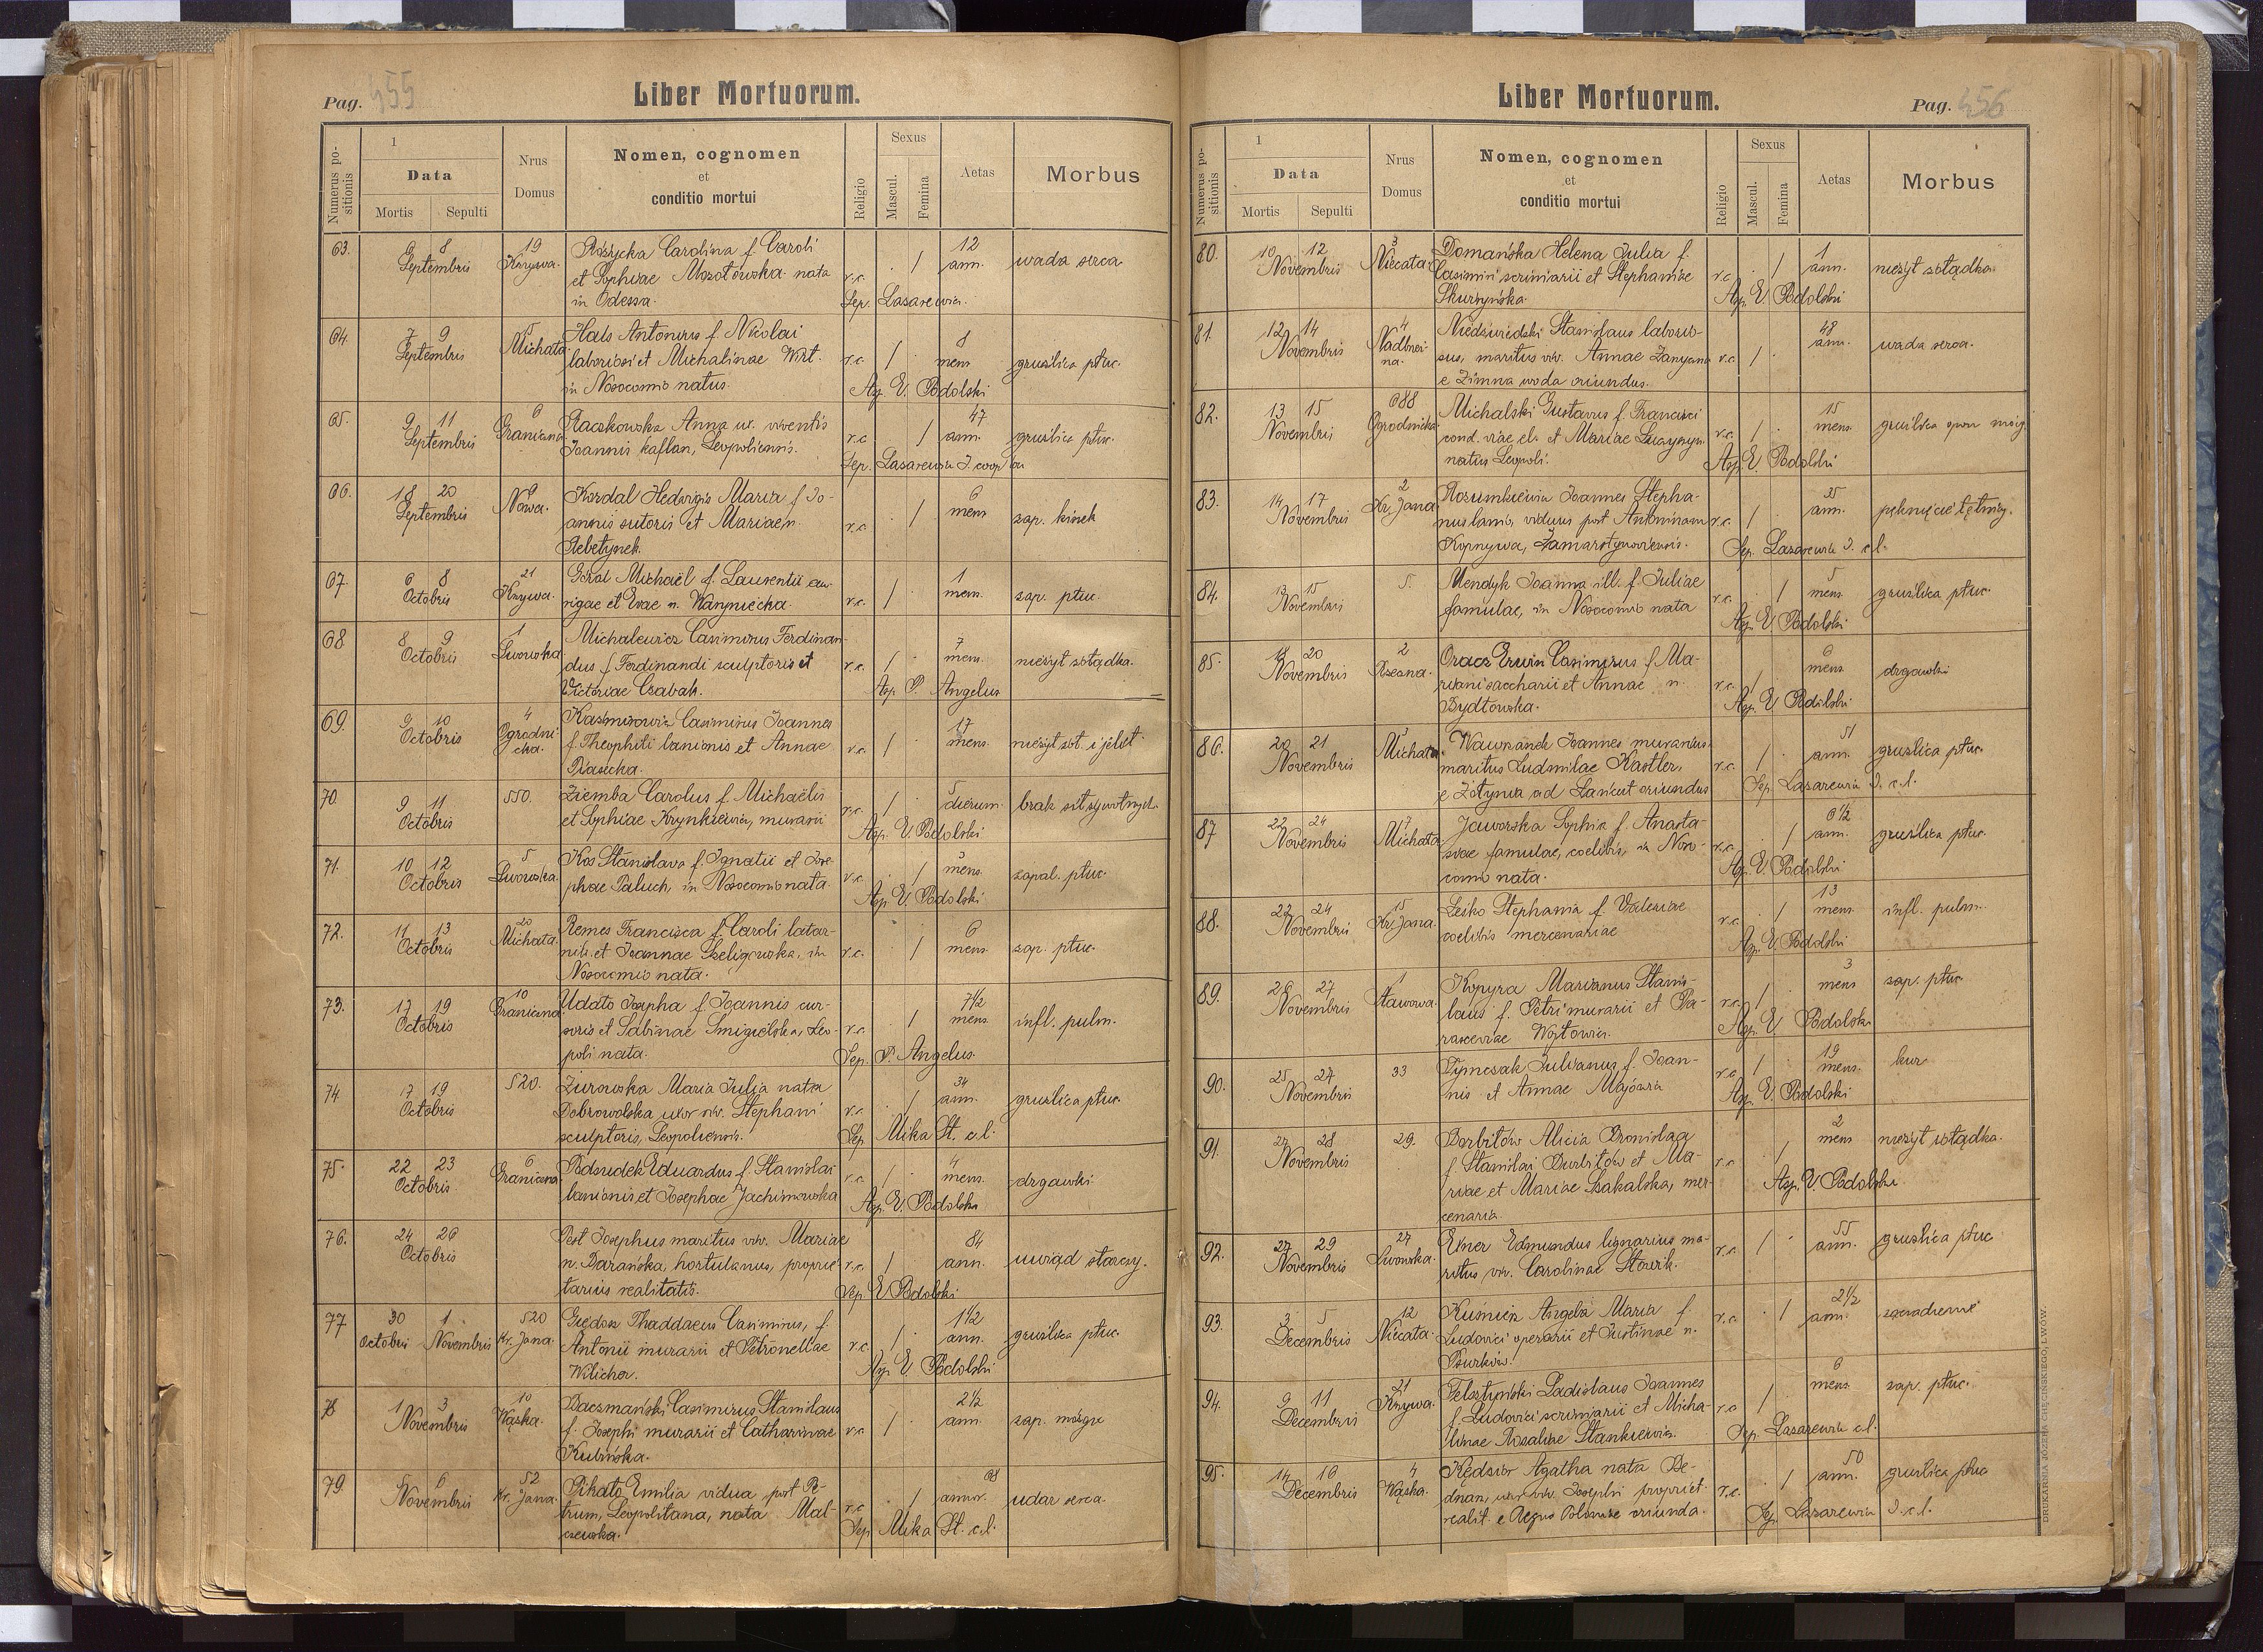 Pag. 455
Liber Mortuorum.
Numerus po-
sitionis
1
Data
Mortis Sepulti
Nrus
Domus
Nomen, cognomen
et
conditio mortui
Religio
Sexus
Mascul.
Femina
Aetas
Morbus
63. 6 8 Septembris 19 Krzywa. Różycka Carolina f. Caroli 12
et Sophiae nata r.c. / ann. wada serca
in Odessa. Sep. Lasarewicz.
64. 7 9 Septembris 5 Michała. Hals Antonius f. Nicolai 8
laboriosi et Michalinae Wirt. r.c. / mens. gruźlica płuc.
in Nosocomio natus. Asp. E. Podolski
65. 9 11 Septembris 6 Graniczna Raczkowska Anna ux. viventis 47
Joannis kaflarz, Leopoliensis. r.c. / ann. gruźlica płuc.
Sep. Lasarewicz J. coop.
66. 18 20 Septembris 9 Nowa. Kordal Hedvigis Maria f. Jo- 6
annis sutoris et Mariae n. r.c. / mens zap. kiszek
Rebetynek.
67. 6 8 Octobris 21 Krzywa. Góral Michaël f. Laurentii au- 1
rigae et Evae n. r.c. / mens. zap. płuc.
68 8 9 Octobris 1 Lwowska Michalewicz Casimirus Ferdinan- 7
dus f. Ferdinandi sculptoris et r.c. / mens. nieżyt żołądka.
Victoriae Czabak. Asp. P. Angelus
69. 9 10 Octobris 4 Ogrodni- Kazimirowicz Casimirus Joannes 17
cka. f. Theophili lanionis et Annae r.c. / mens. nieżyt żoł. i jelit
Piasecka.
70. 9 11 Octobris 550. Ziemba Carolus f. Michaëlis 5
et Sophiae Krynkiewicz, murarii r.c. / dierum. brak sił żywotnych.
Asp. E. Podolski
71. 10 12 Octobris 5 Lwowska. Kos Stanislava f. Ignatii et Jose- 5
phae Paluch, in Nosocomio nata. r.c. / mens. zapal. płuc.
Asp. E. Podolski
72. 11 13 Octobris 20 Michała. Remes Francisca f. Caroli latar- 6
nik. et Joannae Szeligowska, in r.c. / mens. zap. płuc.
Nosocomio nata.
73. 17 19 Octobris 10 Graniczna Udało Josepha f. Joannis cur- 7 1/2
soris et Sabinae Smigielska, Leo- r.c. / mens. infl. pulm.
poli nata. Sep. P. Angelus.
74 17 19 Octobris 520. Żurowska Maria Julia nata 34
Dobrowolska uxor viv. Stephani r.c. / ann. gruźlica płuc.
sculptoris, Leopoliensis. Sep. Mika St. c.l.
75. 22 23 Octobris 6 Graniczna Podsudek Eduardus f. Stanislai 4
lanionis et Josephae Jachimowska r.c. / mens. drgawki
Asp. E. Podolski
76. 24 26 Octobris Pest Josephus maritus viv. Mariae 84
n. Barańska, hortulanus, proprie- r.c. / ann. uwiąd starczy.
tarius realitatis. Sep. E Podolski
77 30 Octobris 1 Novembris 520 Kr. Jana. Giędosz Thaddaeus Casimirus, f. 1 1/2
Antonii murarii et Petronellae r.c. / ann. gruźlica płuc.
Wilicher. Asp. E. Podolski
78 1 3 Novembris 10 Wąska. Daczmański Casimirus Stanislaus 2 1/2
f. Josephi murarii et Catharinae r.c. / ann. zap. mózgu
Kubińska.
79 5 6 Novembris 52 Kr. Jana. Pikato Emilia vidua post Pe- 68
trum, Leopolitana, nata Mal- r.c. / annor. udar serca.
czewska. Sep. Mika St. c.l.
Liber Mortuorum.
Pag. 456
Numerus po-
sitionis
1
Data
Mortis Sepulti
Nrus
Domus
Nomen, cognomen
et
conditio mortui
Religio
Sexus
Mascul.
Femina
Aetas
Morbus
80. 10 12 Novembris 3 Niecała. Domańska Helena Julia f. 1
Casimiri scriniarii et Stephaniae r.c. / ann. nieżyt żołądka.
Skurzyńska. Asp. E. Podolski
81. 12 14 Novembris 4 Nadbrzeż- Niedźwiedzki Stanislaus laborio- 48
na. sus, maritus viv. Annae r.c. / ann. wada serca.
e Zimna woda oriundus.
82. 13 15 Novembris 688 Ogrodnicka Michalski Gustavus f. Francisci 15
cond. viae el. et Mariae r.c. / mens. gruźlica opon mózg.
natus Leopoli. Asp. E. Podolski
83. 14 17 Novembris 2 Kr. Jana Rozumkiewicz Joannes Stepha-
nus lanio, viduus post Antoninam r.c. / 35 ann. pęknięcie tętnicy.
Kopnywa, Zamarstynoviensis. Sep. Lazarewicz J. c.l.
84. 13 15 Novembris 5. Mendyk Joanna ill. f. Juliae 5
famulae, in Nosocomio nata r.c. / mens. gruźlica płuc.
Asp. E Podolski
85. 18 20 Novembris 2 Rzeźna. Oracz Erwin Casimirus f. Ma- 6
riani saccharii et Annae n. r.c. / mens. drgawki
Bydłowska. Asp. E Podolski
86. 20 21 Novembris 5 Michała Wawrzanek Joannes murarius 51
maritus Ludmilae Kastler, r.c. / ann. gruźlica płuc.
e Żołynia ad Łańcut oriundus Sep. Lasarewicz J. c.l.
87 22 24 Novembris 17 Michała Jaworska Sophia f. Anasta- 6 1/2
siae famulae, coelibis, in Noso- r.c. / ann. gruźlica płuc
comio nata. Asp. E. Podolski
88. 22 24 Novembris 15 Kr. Jana. Leśko Stephania f. Valeriae 13
coelibis mercenariae r.c. / mens. infl. pulm.
Asp. E Podolski
89. 26 27 Novembris 1 Stawowa. Kopyra Marianus Stanis- 3
laus f. Petri murarii et Pa- r.c. / mens zap. płuc
rasceviae Wojtowicz. Asp. E Podolski
90. 25 27 Novembris 33 Tymczak Julianus f. Joan- 19
nis et Annae r.c. / mens. kur
Asp. E. Podolski
91. 27 28 Novembris 29. Borbitów Alicia Bronislaa 2
f. Stanislai Durbitów et Ma- r.c. / mens nieżyt żołądka.
riae et Mariae Szakalska, mer- Asp. E. Podolski
cenaria.
92. 27 29 Novembris 27 Lwowska. Exner Edmundus lignarius ma- 55
ritus viv. Carolinae Słowik. r.c. / ann. gruźlica płuc
93. 3 5 Decembris 12 Niecała. Kuśnierz Angela Maria f. 2 1/2
Ludovici operarii et Justinae n. r.c. / ann.
Psurków.
94. 9 11 Decembris 21 Krzywa. Felsztyński Ladislaus Joannes 6
f. Ludovici scriniarii et Micha- r.c. / mens. zap. płuc.
linae Rosaliae Stankiewicz. Sep. Lasarewicz c.l.
95. 14 16 Decembris 4 Wąska. Kędzior Agatha nata Be- 50
dnarz, uxor viv. Josephi propriet. r.c. / ann. gruźlica płuc
realit. e Regno Poloniae oriunda. Sep. Lazarewicz J. c.l.
DRUKARNIA JÓZEFA CHĘCIŃSKIEGO, LWÓW.